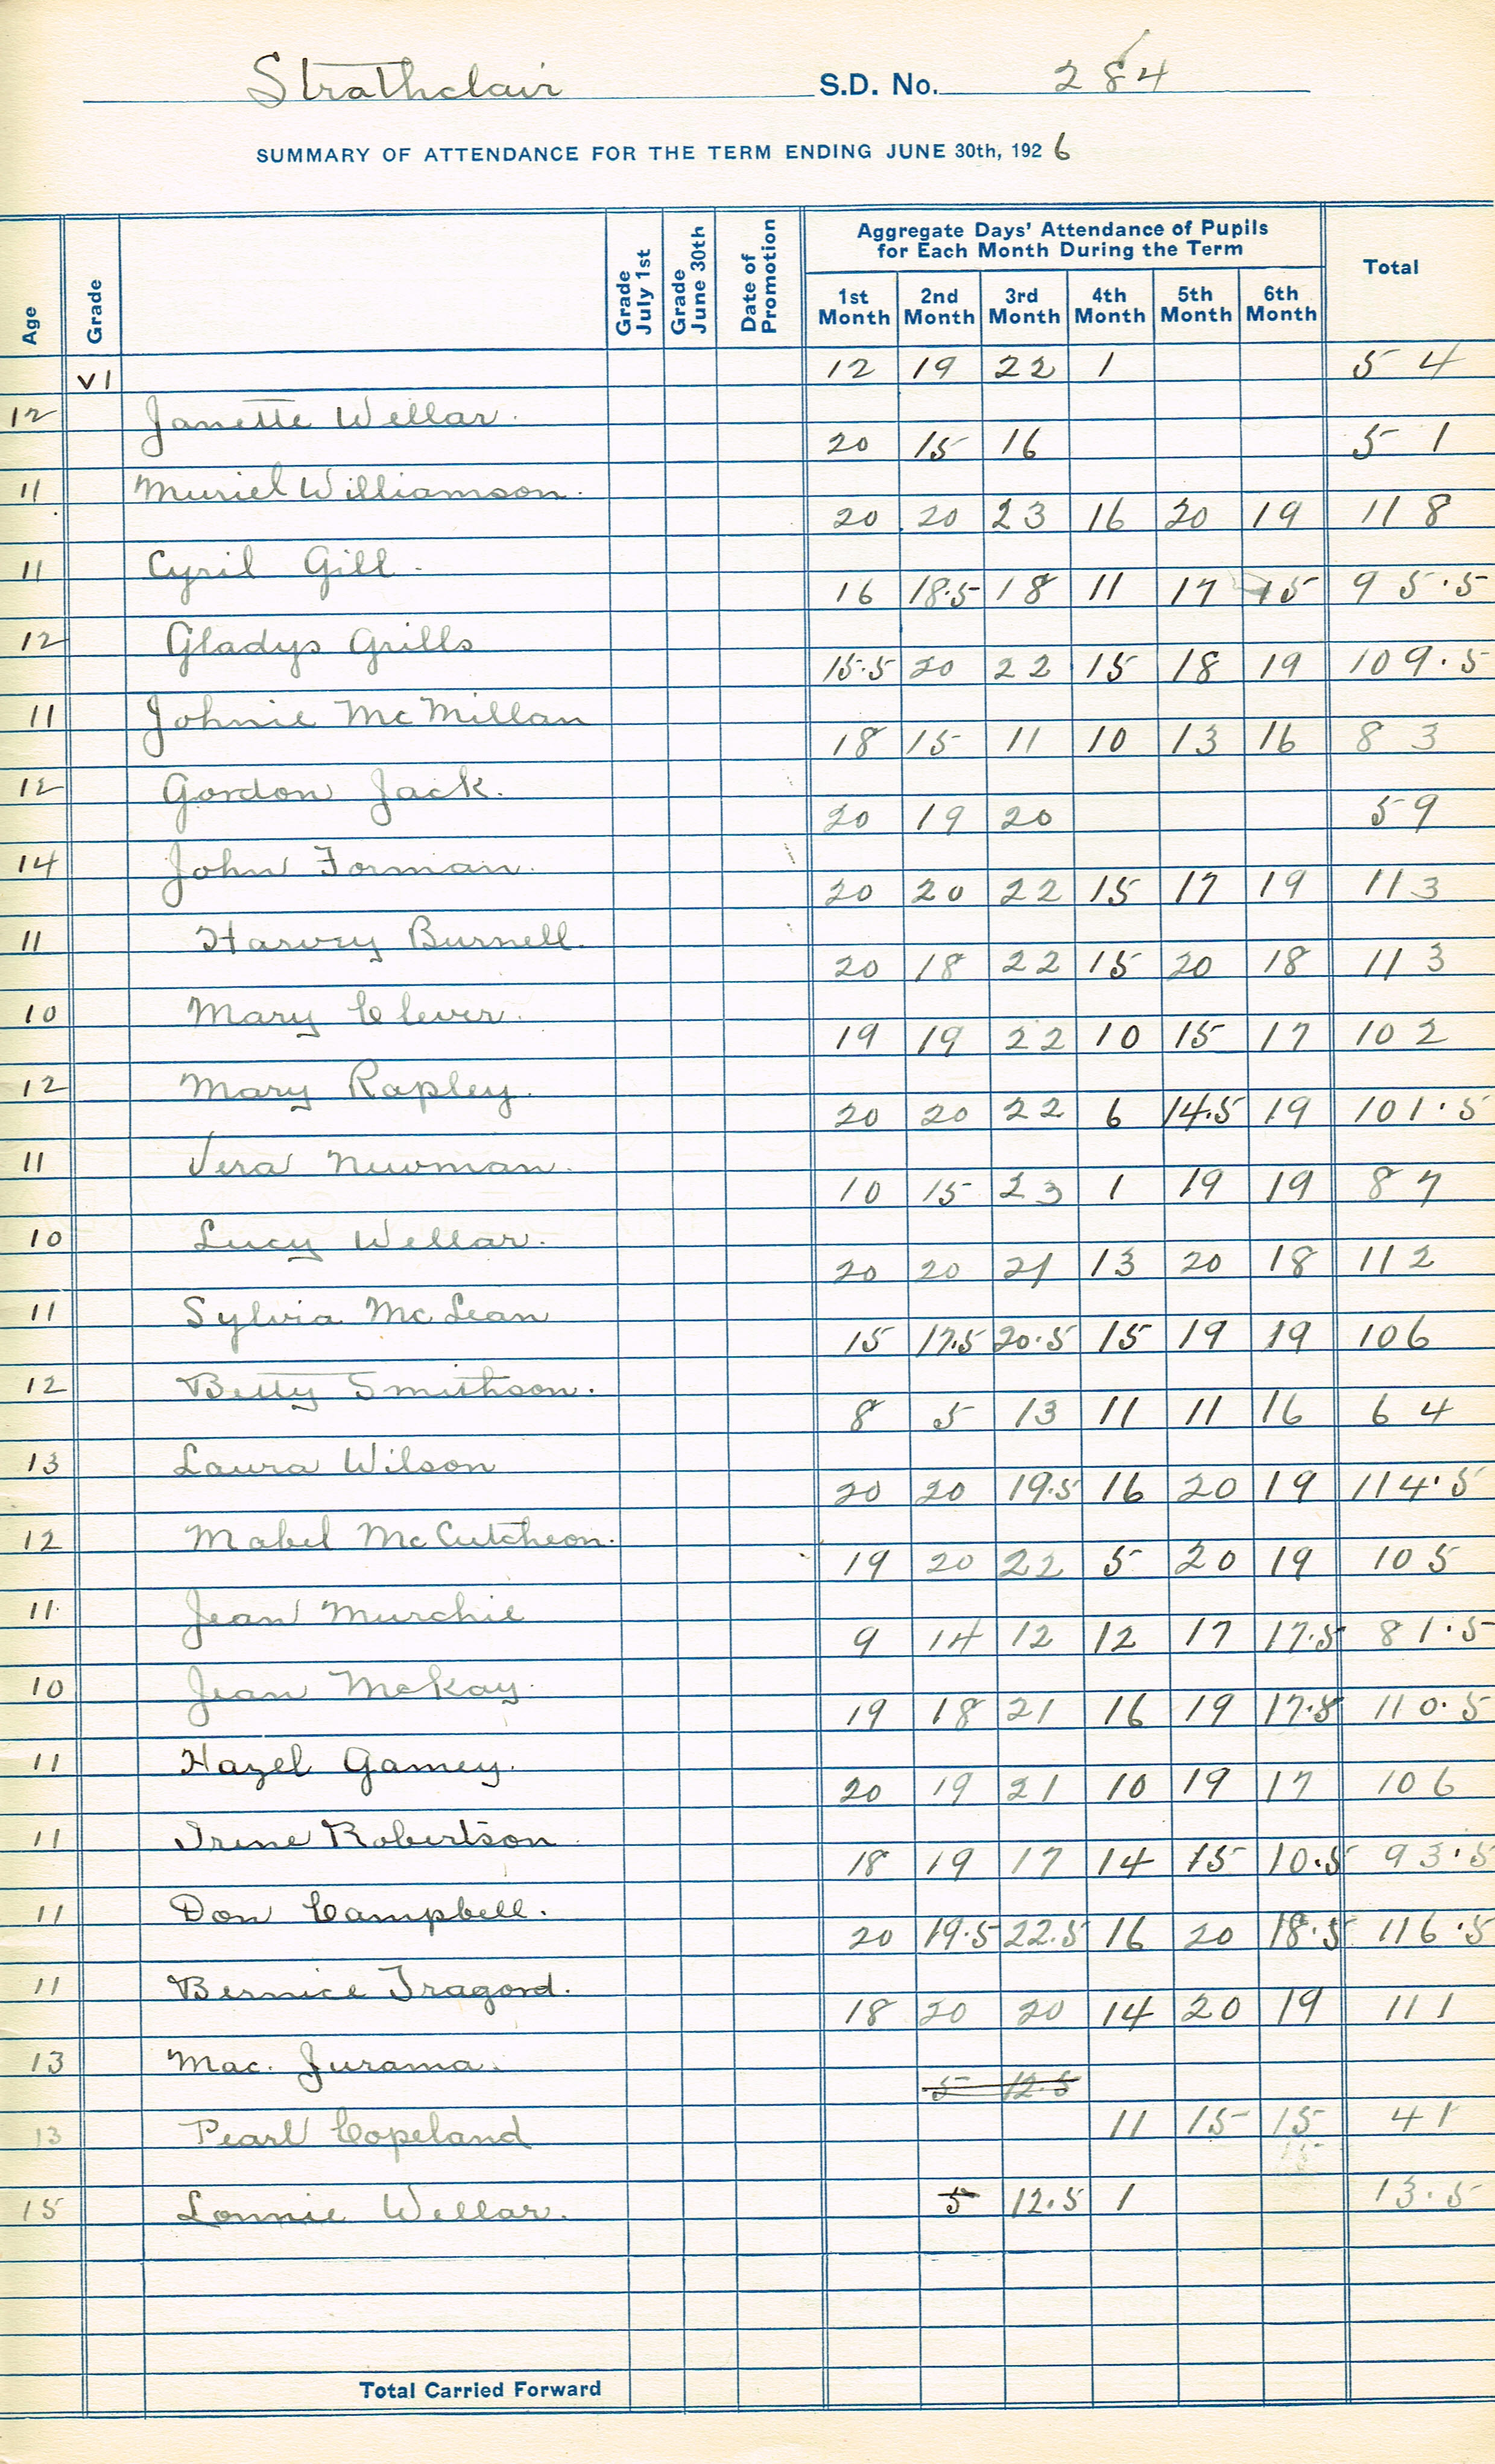 Strathclair S.D. No. 284
SUMMARY OF ATTENDANCE FOR THE TERM ENDING JUNE 30th, 1926
Age Grade Grade July 1st Grade June 30th Date of Promotion Aggregate Days' Attendance of Pupils for Each Month During the Term Total
1st Month 2nd Month 3rd Month 4th Month 5th Month 6th Month
VI 12 19 22 1 54
12 Janette Wellar.
20 15 16 51
11 Muriel Williamson.
20 20 23 16 20 19 118
11 Cyril Gill.
16 18.5 18 11 17 15 95.5
12 Gladys Grills
15.5 20 22 15 18 19 109.5
11 Johnie McMillan
18 15 11 10 13 16 83
12 Gordon Jack.
20 19 20 59
14 John Forman.
20 20 22 15 17 19 113
11 Harvey Burnell.
20 18 22 15 20 18 113
10 Mary Clever.
19 19 22 10 15 17 102
12 Mary Rapley.
20 20 22 6 14.5 19 101.5
11 Vera Newman.
10 15 23 1 19 19 87
10 Lucy Wellar.
20 20 21 13 20 18 112
11 Sylvia McLean
15 17.5 20.5 15 19 19 106
12 Betty Smithson.
8 5 13 11 11 16 64
13 Laura Wilson
20 20 19.5 16 20 19 114.5
12 Mabel McCutcheon.
19 20 22 5 20 19 105
11 Jean Murchie
9 14 12 12 17 17.5 81.5
10 Jean McKay.
19 18 21 16 19 17.5 110.5
11 Hazel Gamey.
20 19 21 10 19 17 106
11 Irene Robertson
18 19 17 14 15 10.5 93.5
11 Don Campbell.
20 19.5 22.5 16 20 18.5 116.5
11 Bernice Tragord.
18 20 20 14 20 19 111
13 Mac. Jurama.
5 12.5
11 15 15 41
13 Pearl Copeland
15 Lonnie Wellar. 5 12.5 1 13.5
Total Carried Forward